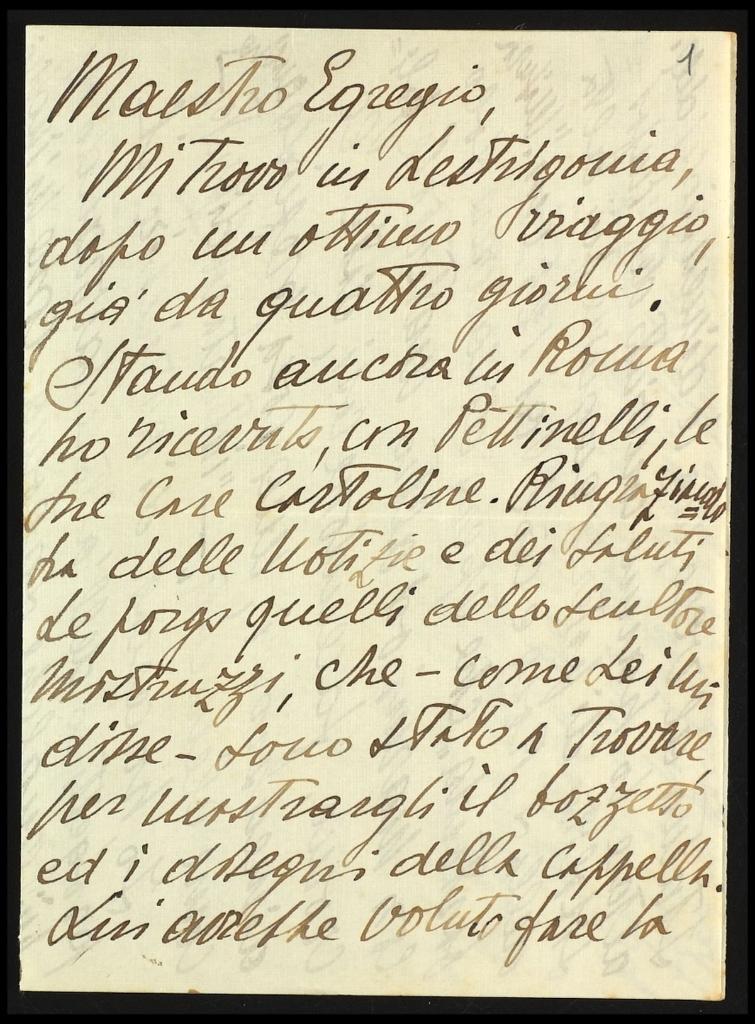 1
Maestro Egregio,
Mi trovo in Lestrigonia,
dopo un ottimo viaggio,
già da quattro giorni.
Stando ancora in Roma
ho ricevuto, con Pettinelli, le
sue care cartoline. Ringrazian=
La delle notizie e dei saluti
Le porgo quelli dello scultore
Mistruzzi, che - come Lei mi
disse - sono stato a trovare,
per mostrargli il bozzetto
ed i disegni della Cappella.
Lui avrebbe voluto fare la